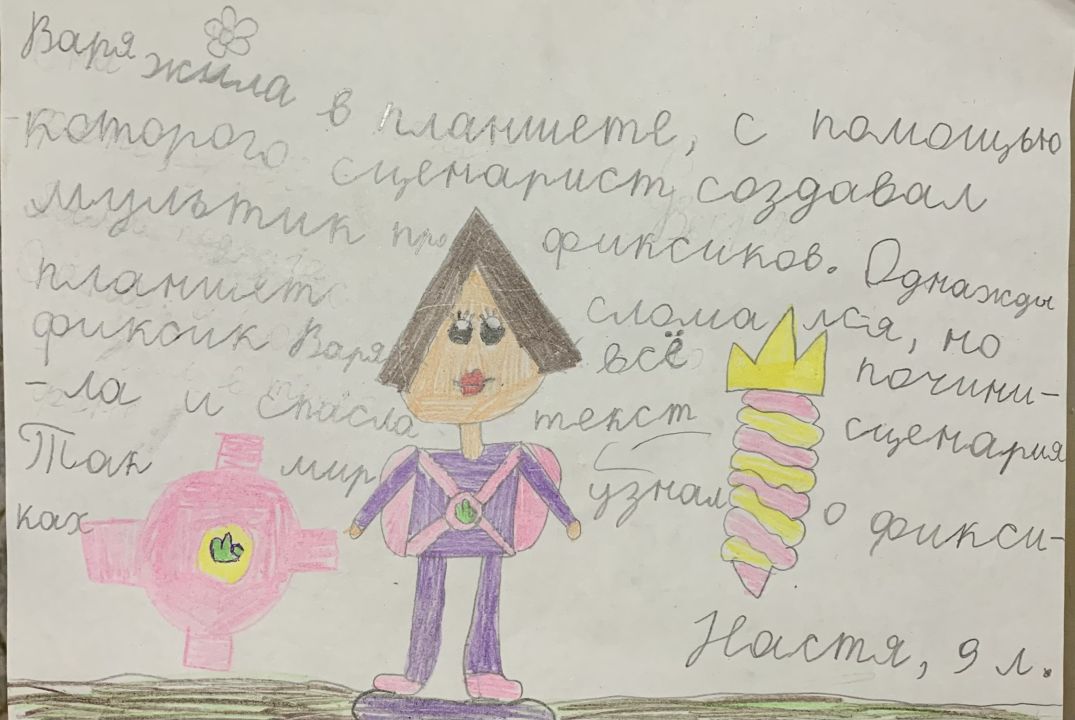 Варя жила в планшете, с помощью
которого сценарист создавал
мультик про фиксиков. Однажды
планшет сломался, но
фиксик Варя всё почини-
-ла и спасла текст сценария
Так мир узнал о фикси-
ках
Настя, 9 л.